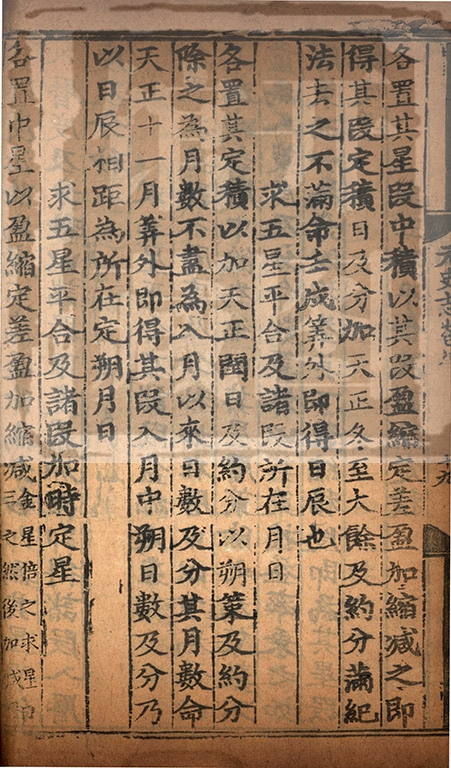 元史志
十九
各置其星段中積以其段盈縮定差盈加縮减之即
得其段定積日及分加天正冬至大餘及約分滿紀
法去之不滿命壬戌筭外即得日辰也
求五星平合及諸段所在月日
各置其定積以加天正閏日及約分以朔策及約分
除之為月數不盡為入月以來日數及分其月數命
天正十一月筭外即得其段入月中朔日數及分乃
以日辰相距為所在定朔月日
求五星平合及諸段加時定星
各置中星以盈縮定差盈加縮减金星倍之水星三之然後加减即